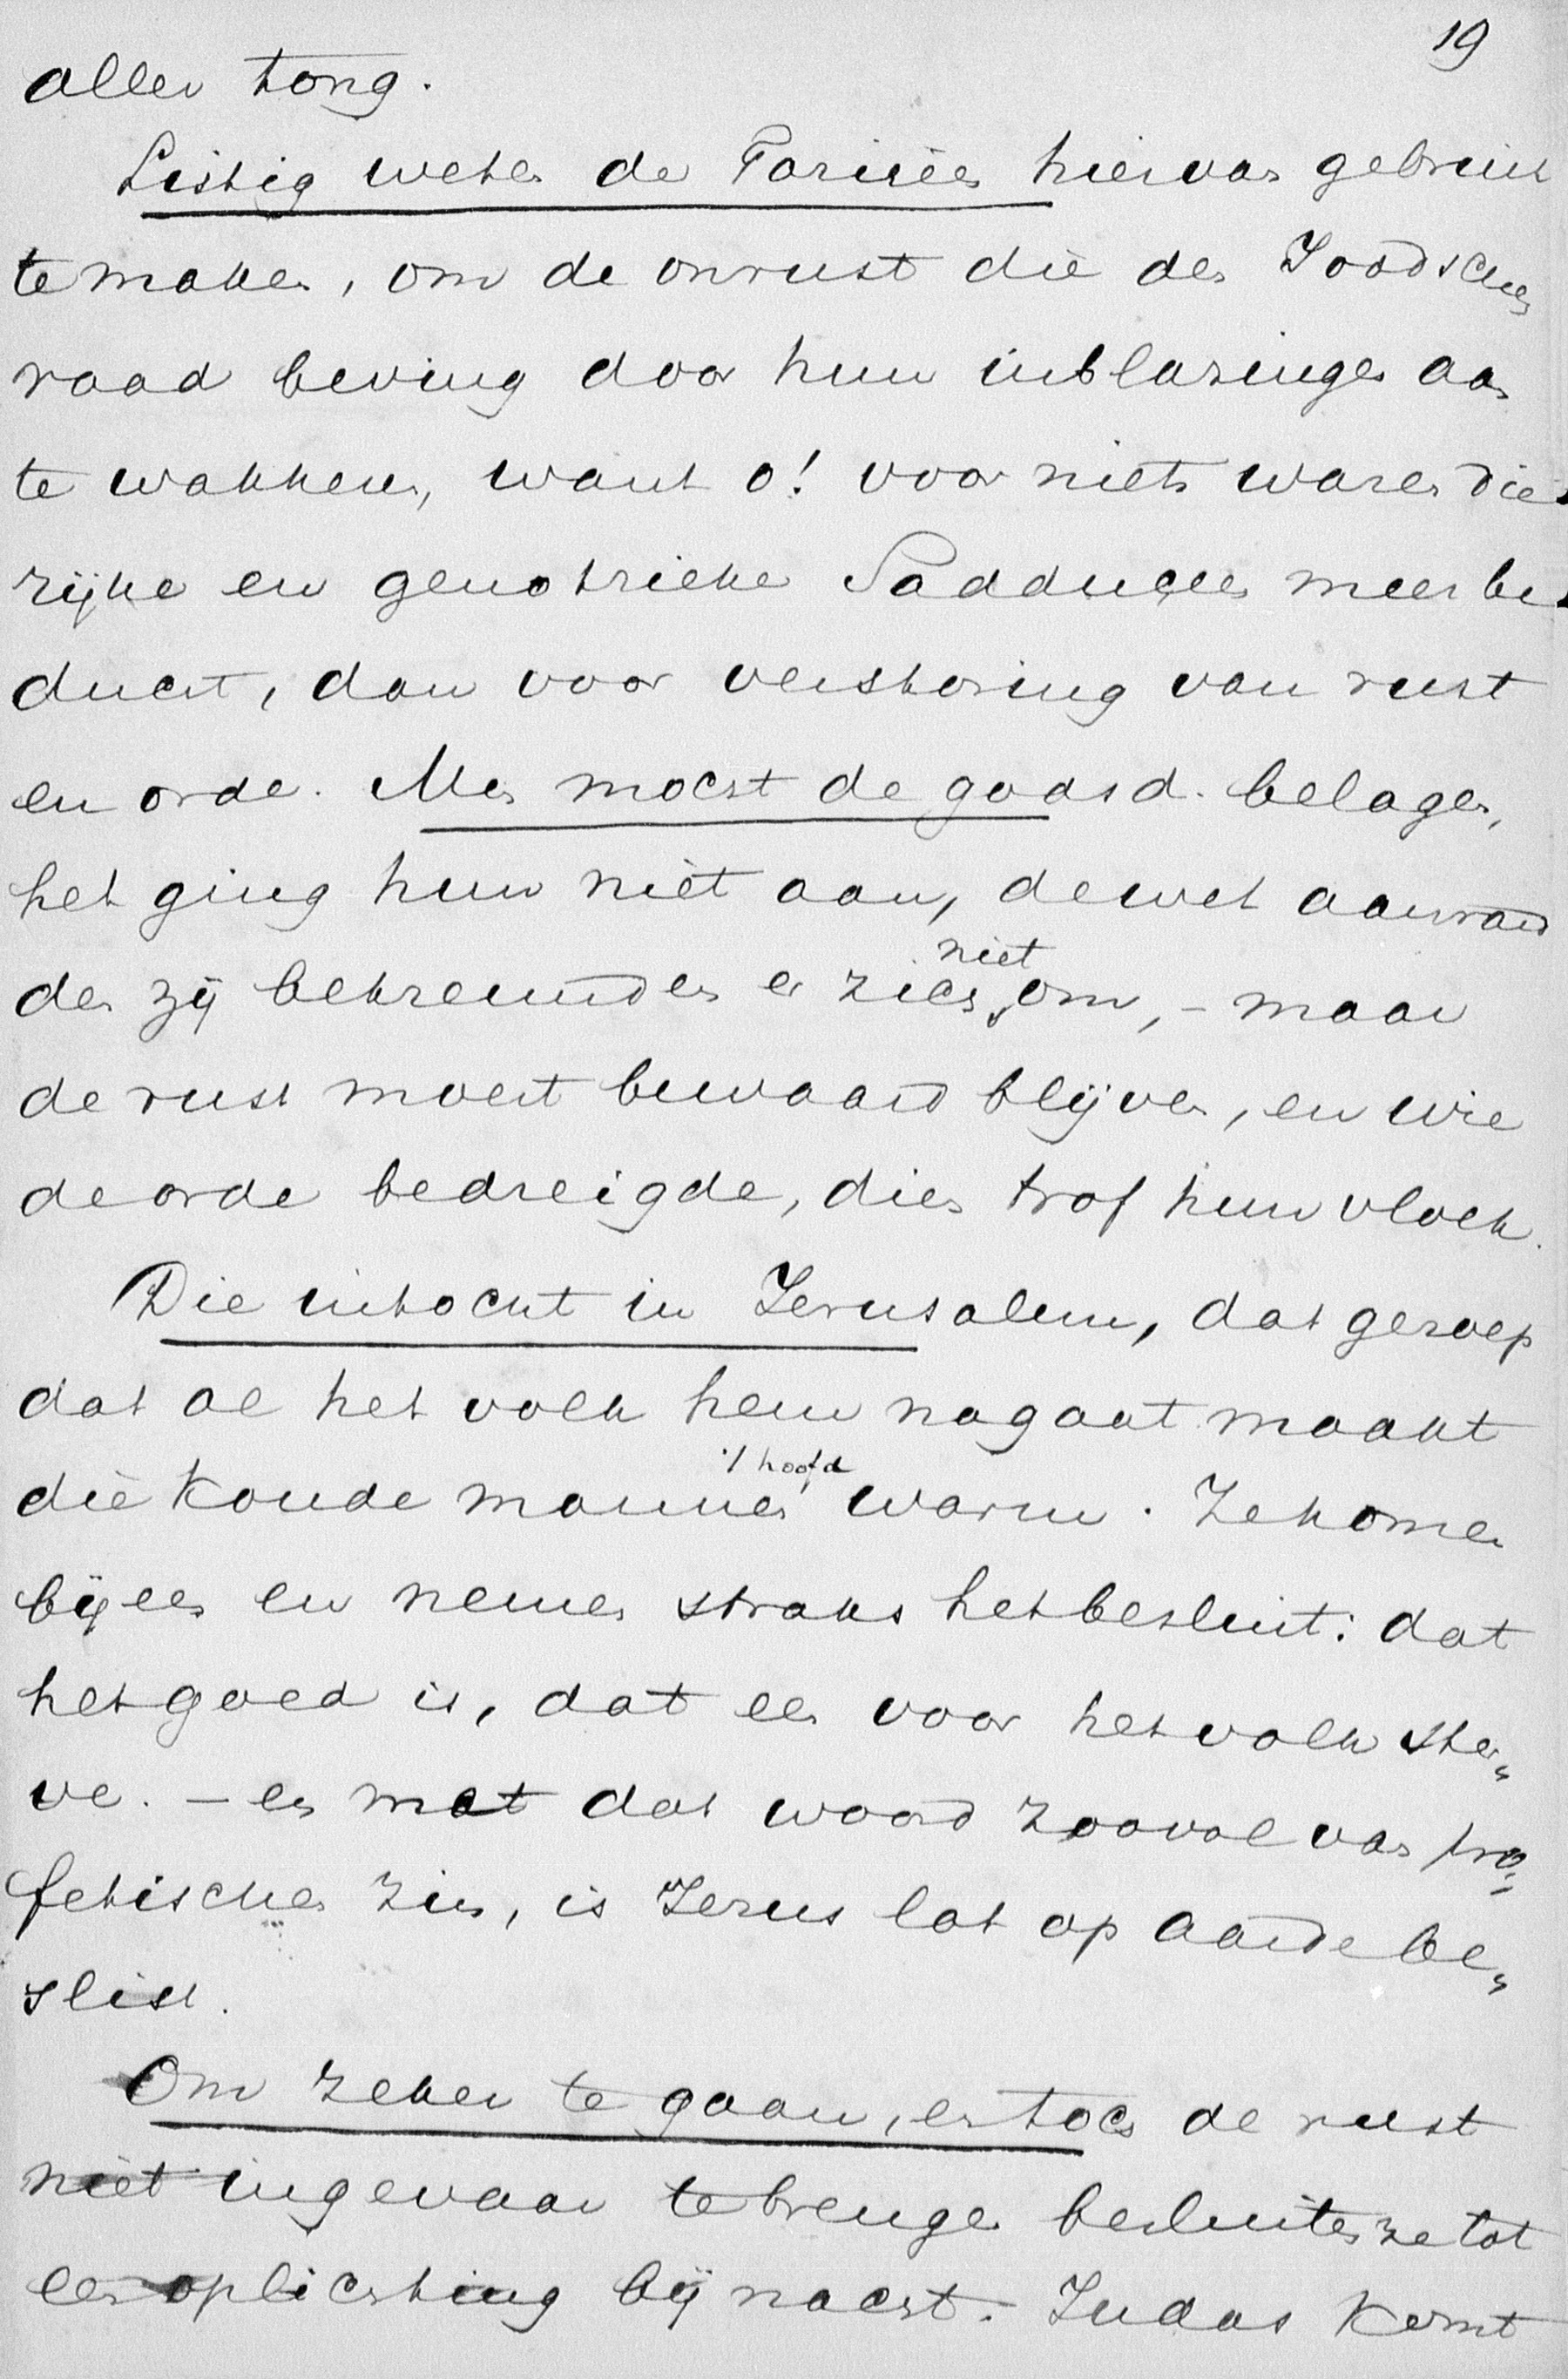 19
aller tong.
Listig weten de Fariseën hiervan gebruik
te maken, om de onrust die den Joodschen
raad beving door hun inblazingen aan
te wakkeren, want o! voor niets waren die
rijke en genotrieke Sadduceën meer be-
ducht, dan voor verstoring van rust
en orde. Men mocht de godsd. belagen,
het ging hun niet aan, de wet aanran
den zij bekreunden er zich niet om, – maar
de rust moest bewaard blijven, en wie
de orde bedreigde, dien trof hun vloek.
Die intocht in Jerusalem, dat geroep
dat al het volk hem nagaat maakt
die koude mannen 't hoofd warm. Ze komen
bijeen en nemen straks het besluit: dat
het goed is, dat een voor het volk ster„
ve. – en met dat woord zoo vol van pro„
fetischen zin, is Jezus lot op aarde be„
slist.
Om zeker te gaan, en toch de rust
niet in gevaar te brengen besluiten ze tot
een oplichting bij nacht. Judas komt